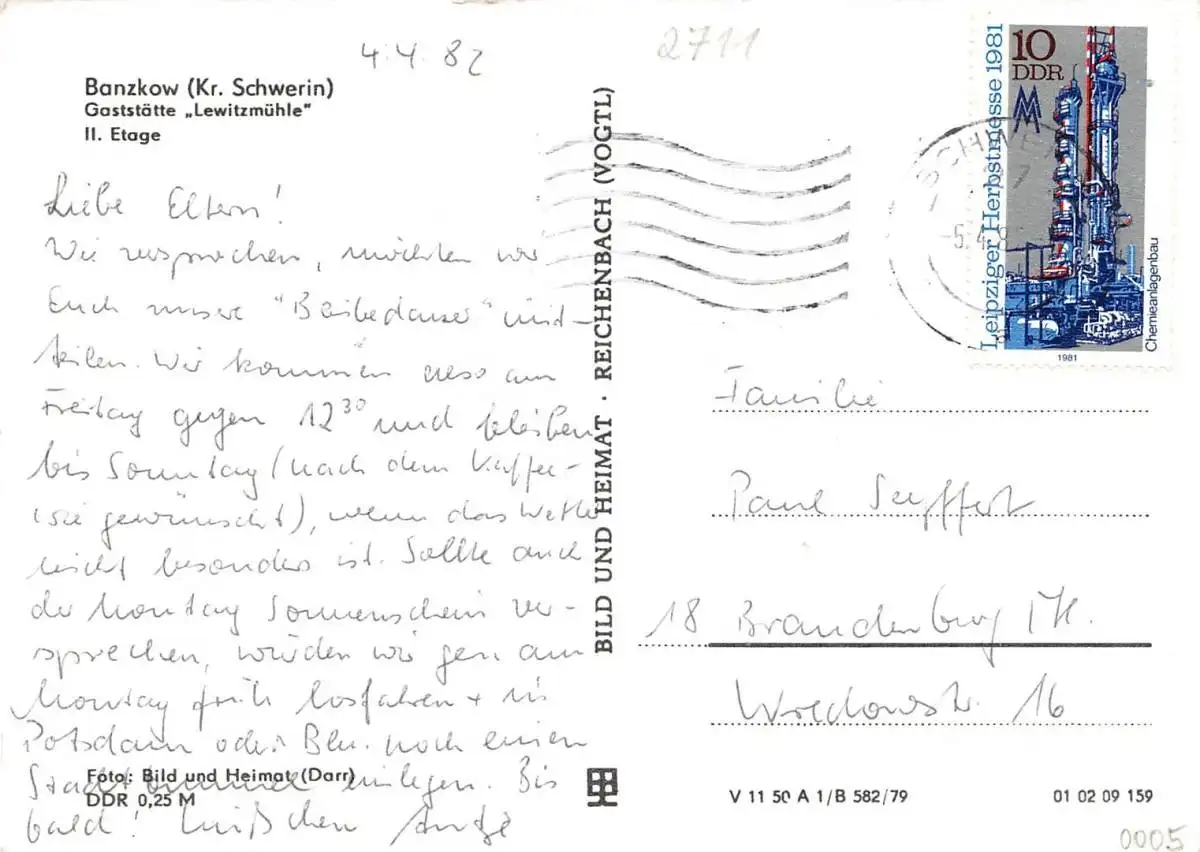 4.4.82
2711
Banzkow (Kr. Schwerin)
Gaststätte „Lewitzmühle"
II. Etage
Liebe Eltern!
Wie versprochen, möchten wir
Euch unsere "Bleibedauer" mit-
teilen. Wir kommen also am
Freitag gegen 12³⁰ und bleiben
bis Sonntag (nach dem Kaffee-
wie gewünscht), wenn das Wetter
nicht besonders ist. Sollte auch
der Montag Sonnenschein ver-
sprechen, würden wir gern am
Montag früh losfahren + in
Potsdam oder Bln. noch einen
Stadtbummel einlegen. Bis
bald! Küßchen Antje
Foto: Bild und Heimat (Darr)
DDR 0,25 M
BILD UND HEIMAT · REICHENBACH (VOGTL)
SCHWE
-5.4.8
Leipziger Herbstmesse 1981
10
DDR
MM
Chemieanlagenbau
1981
Familie
Paul Seyffert
18 Brandenburg /H.
Wredowstr. 16
V 11 50 A 1/B 582/79
01 02 09 159
0005